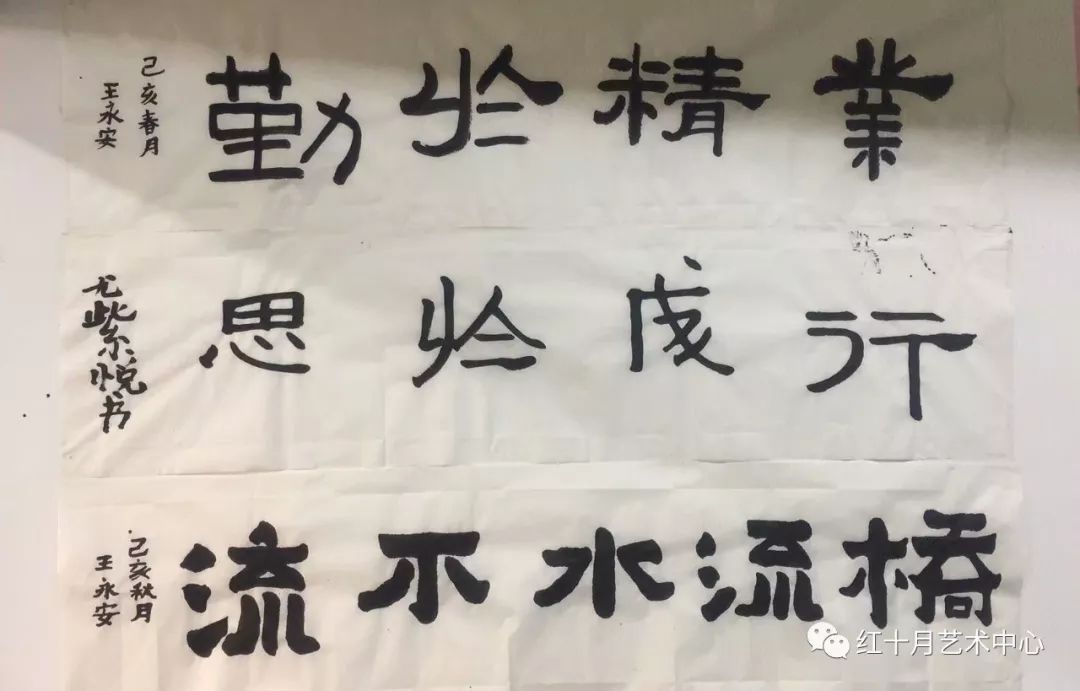 業精於勤
己亥春月
王永安
行成於思
尤紫悦书
橋流水不流
己亥秋月
王永安
红十月艺术中心